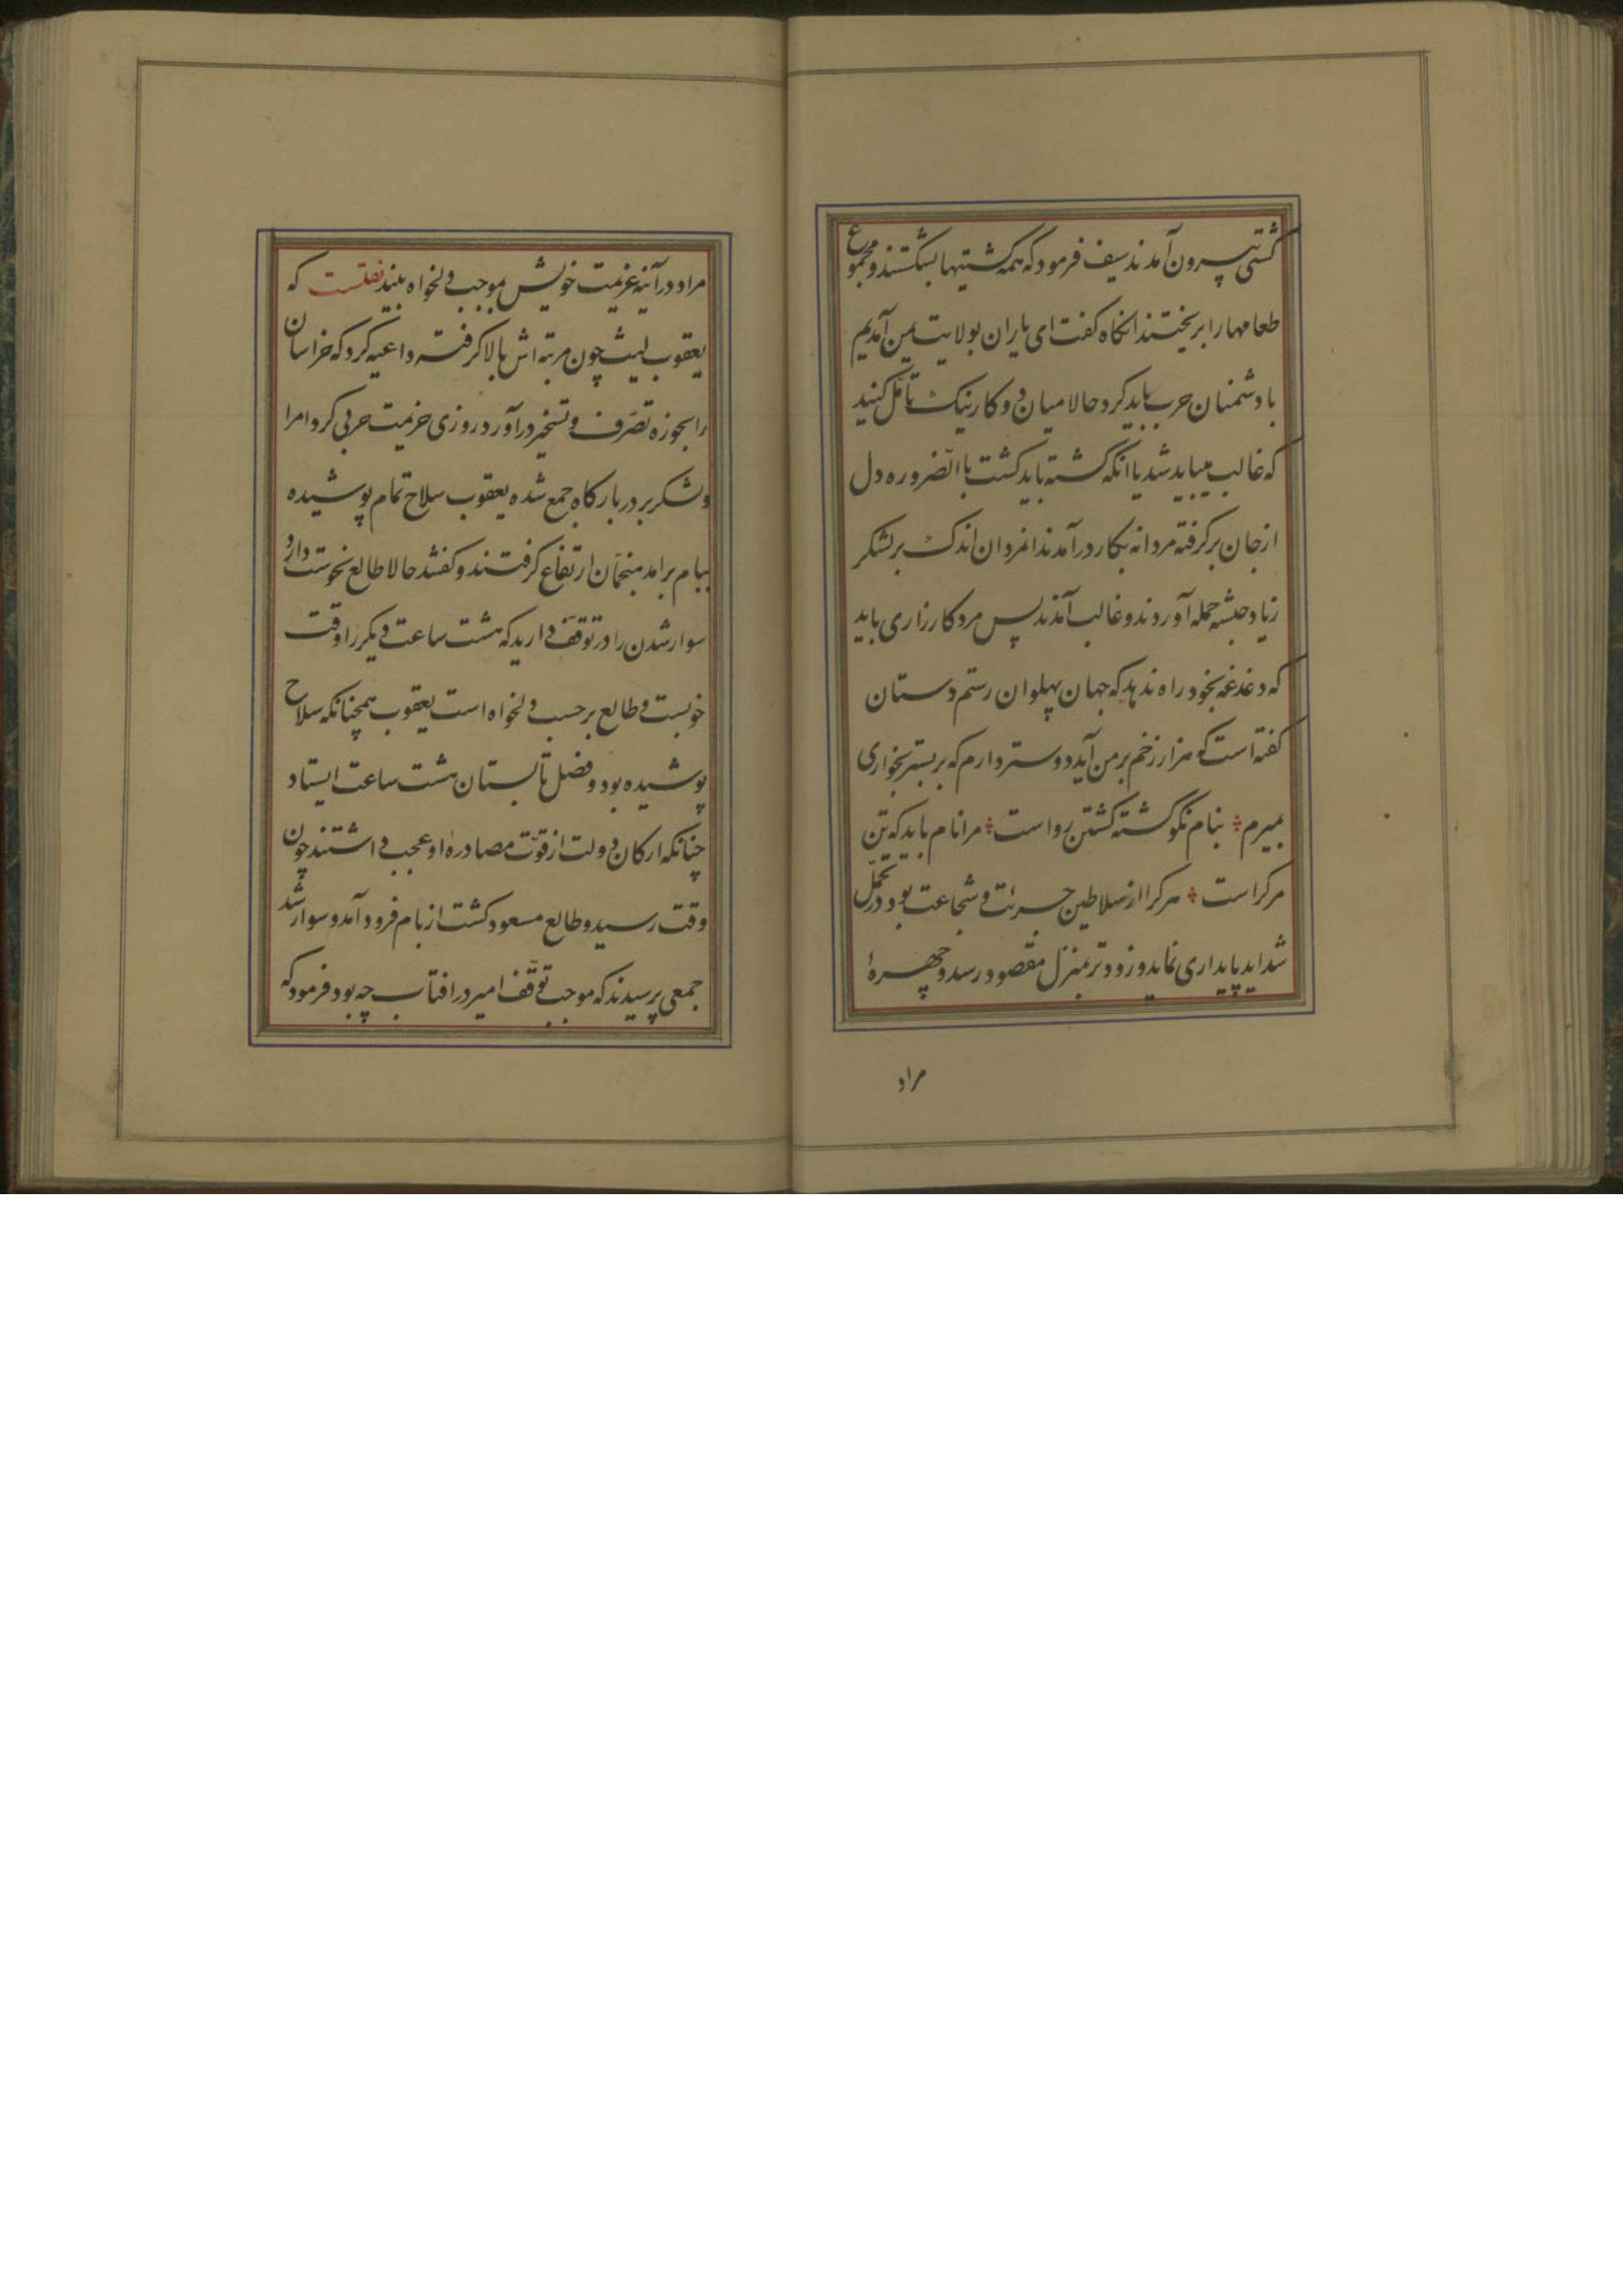 کشتی بیرون آمدند سیف فرمود که همه کشتیها بشکستند و مجموع
طعامها را بریختند انکاه کفت ای یاران بولایت یمن آمدیم
با دشمنان حرب باید کرد حالا میان دو کار نیک تأمّل کنید
که غالب میباید شد یا انکه کشته باید کشت باالضروره دل
از جان برکرفته مردانه بکار درآمدند انمردان اندک بر لشکر
زیاد حبشه حمله آوردند و غالب آمدند پس مرد کارزاری باید
که دغدغه بخود راه ندهد که جهان پهلوان رستم دستان
کفته است که هزار زخم بر من آید دوستر دارم که بر بستر بخواری
بمیرم بنام نکو کشته کشتن رواست مرا نام باید که تن
مرکراست هرکرا از سلاطین جرئت و شجاعت بود در تحمّل
شداید پایداری نماید و زودتر بمنزل مقصود رسد و چهرهٔ
مراد
مراد در آینه عزیمت خویش بموجب دلخواه بیند نقلست که
یعقوب لیث چون مرتبه اش بالا کرفت داعیه کرد که خراسان
را بحوزه تصرّف و تسخیر درآورد روزی عزیمت حربی کرد امرا
و لشکر بر در بارکاه جمع شده یعقوب سلاح تمام پوشیده
ببام برامد منجّمان ارتفاع کرفتند و کفتند حالا طالع نحوست دارد
سوار شدن را در توقّف دارید که هشت ساعت دیکر را وقت
خوبست و طالع بر حسب دلخواه است یعقوب همچنانکه سلاح
پوشیده بود و فصل تابستان هشت ساعت ایستاد
چنانکه ارکان دولت از قوّت مصادرهٔ او عجب داشتند چون
وقت رسید و طالع مسعود کشت از بام فرود آمد و سوار شد
جمعی پرسیدند که موجب توقّف امیر در افتاب چه بود فرمود که